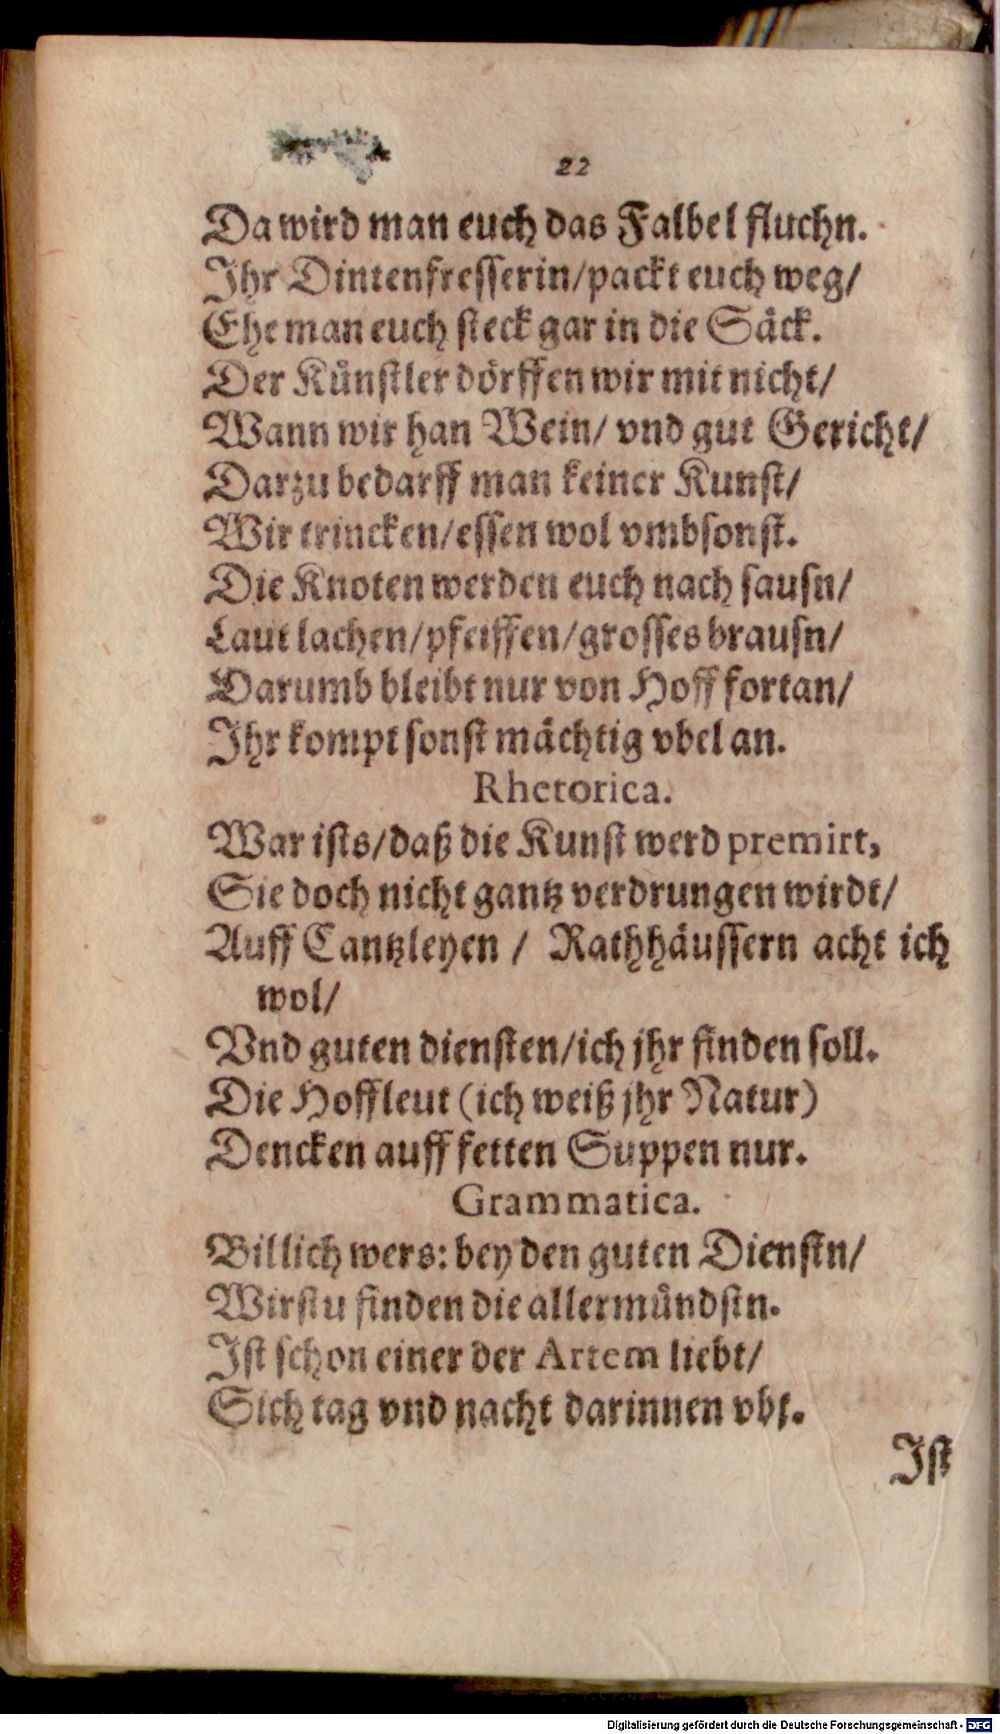 22
Da wird man euch das Falbel fluchn.
Jhr Dintenfresserin/packt euch weg/
Ehe man euch steck gar in die Säck.
Der Kůnstler dörffen wir mit nicht/
Wann wir han Wein/ vnd gut Gericht/
Darzu bedarff man keiner Kunst/
Wir trincken/essen wol vmbsonst.
Die Knoten werden euch nach sausn/
Laut lachen/pfeiffen/grosses brausn/
Darumb bleibt nur von Hoff fortan/
Jhr kompt sonst mächtig vbel an.
Rhetorica.
War ists/daß die Kunst werd premirt,
Sie doch nicht gantz verdrungen wirdt/
Auff Cantzleyen / Rathhäussern acht ich
wol/
Vnd guten diensten/ich jhr finden soll.
Die Hoffleut (ich weiß jhr Natur)
Dencken auff fetten Suppen nur.
Grammatica.
Billich wers: bey den guten Dienstn/
Wirstu finden die allermůndstn.
Jst schon einer der Artem liebt/
Sich tag vnd nacht darinnen vbt.
Jst
Digitalisierung gefördert durch die Deutsche Forschungsgemeinschaft - DFG